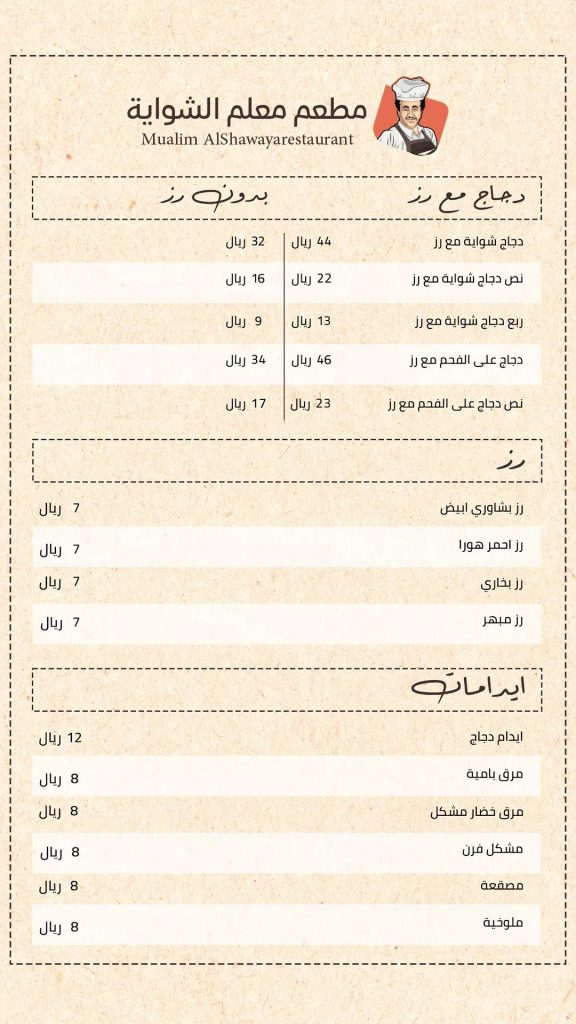 مطعم معلم الشواية
Mualim AlShawayarestaurant
دجاج مع رز بدون رز
دجاج شواية مع رز 44 ريال 32 ريال
نص دجاج شواية مع رز 22 ريال 16 ريال
ربع دجاج شواية مع رز 13 ريال 9 ريال
دجاج على الفحم مع رز 46 ريال 34 ريال
نص دجاج على الفحم مع رز 23 ريال 17 ريال
رز
رز بشاوري ابيض 7 ريال
رز احمر هورا 7 ريال
رز بخاري 7 ريال
رز مبهر 7 ريال
ايدامات
ايدام دجاج 12 ريال
مرق بامية 8 ريال
مرق خضار مشكل 8 ريال
مشكل فرن 8 ريال
مصقعة 8 ريال
ملوخية 8 ريال